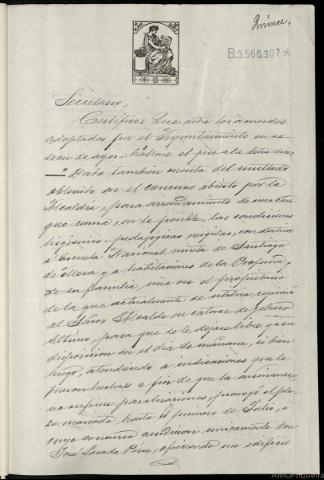 Primer.
B.3.566.307 *
Secretario,
Certifico: Que entre los acuerdos
adoptados por el Ayuntamiento en se
sión de ayer, hállase el que a la letra
Dado también cuenta del resultado
obtenido en el concurso abierto por la
Alcaldía, para arrendamiento de una casa
que reuna, en lo posible, las condiciones
higiénico-pedagógicas exigidas, con destino
a Escuela Nacional mixta de Santiago
de Mera y a habitaciones de la Profesora
y su familia, una vez el propietario
de la que actualmente se utiliza, requirió
al Señor Alcalde en catorce de febrero
último, para que se le dejase libre y a su
disposición en el día de mañana, si bien
luego, atendiendo a indicaciones que le
fueron hechas a fin de que la enseñanza
no sufriese paralizaciones, prorrogó el plazo
marcado hasta el primero de Julio, a
cuyo concurso acudieron únicamente Don
José Losada Pérez, ofreciendo un edificio
AmOrtigueira